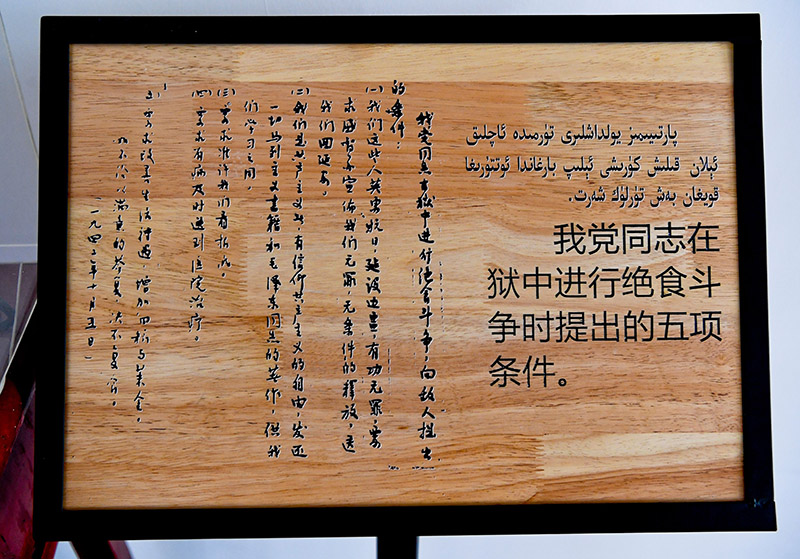 پارتىيىمىز يولداشلىرى تۈرمىدە ئاچلىق
ئېلان قىلىش كۈرىشى ئېلىپ بارغاندا ئوتتۇرىغا
قويغان بەش تۈرلۈك شەرت.
我党同志在
狱中进行绝食斗
争时提出的五项
条件。
我党同志在狱中进行绝食斗争，向敌人提出
的条件：
(一)我们这些人英勇抗日，建设边疆，有功无罪，要
求盛督办宣佈我们无罪，无条件的释放，送
我们回延安。
(二)我们是共产主义者，有信仰共产主义的自由，发还
一切马列主义书籍和毛泽东同志的著作，供我
们学习之用。
(三)要求准许我们看报纸。
(四)要求有病及时送到医院治疗。
(五)要求改善生活待遇，增加口粮与菜金。
如不给以满意的答复，决不复食。
(一九四年十月五日)